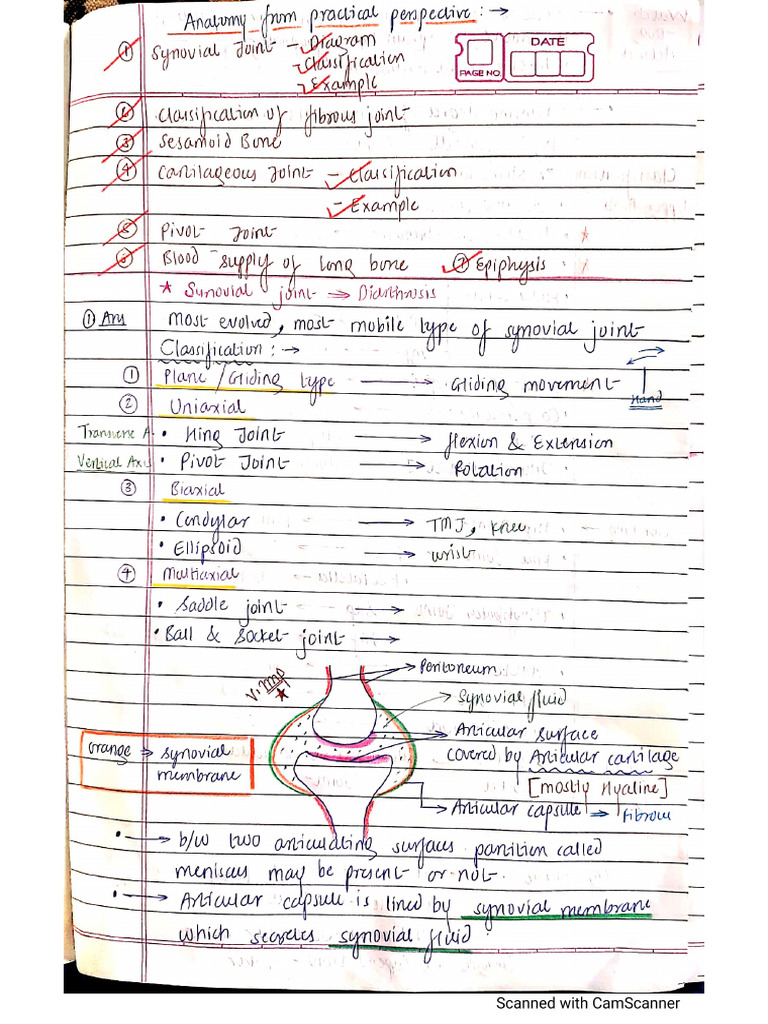 Anatomy from practical perspective : →
① Synovial Joint - Diagram
- Classification
- Example
PAGE NO.
DATE
② Classification of fibrous joint
③ Sesamoid Bone
④ Cartilageous Joint - Classification
- Example
⑤ Pivot Joint
⑥ Blood supply of long bone ⑦ Epiphysis
* Synovial joint ⇒ Diarthrosis
① Ans most evolved, most mobile type of synovial joint
Classification : →
① Plane / Gliding type → Gliding movement
Hand
② Uniaxial
Transverse A. • Hing Joint → flexion & Extension
Vertical Axis • Pivot Joint → Rotation
③ Biaxial
• Condylar → TMJ, knee
• Ellipsoid → wrist
④ Multiaxial
• Saddle joint →
• Ball & Socket joint →
V. Imp *
Peritoneum
Synovial fluid
Articular surface
covered by Articular cartilage
[mostly Hyaline]
Orange → synovial
membrane
Articular capsule ⇒ Fibrous
• → b/w two articulating surfaces partition called
meniscus may be present or not.
• → Articular capsule is lined by synovial membrane
which secretes synovial fluid.
Scanned with CamScanner